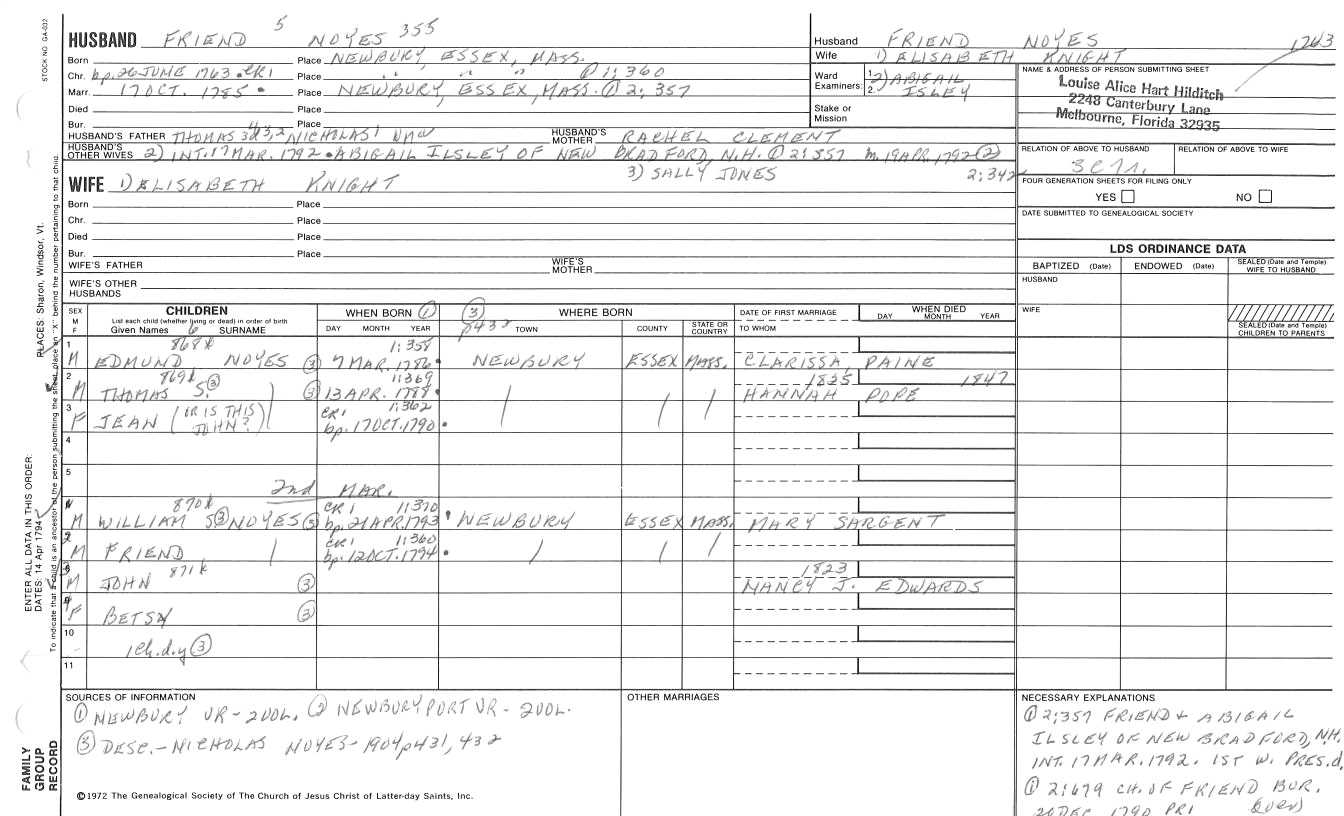 5
HUSBAND FRIEND NOYES 355
Born Place NEWBURY, ESSEX, MASS.
Chr. bp. 26 JUNE 1763 • CR1 Place " " " ① 1; 360
Marr. 17 OCT. 1785 • Place NEWBURY, ESSEX, MASS. ① 2; 357
Died Place
Bur. Place
HUSBAND'S FATHER THOMAS NICHOLAS HUSBAND'S MOTHER RACHEL CLEMENT
HUSBAND'S OTHER WIVES 2) INT. 17 MAR. 1792 • ABIGAIL ILSLEY OF NEW BRADFORD, N.H. ① 2; 357 m. 19 APR. 1792 ②
3) SALLY JONES 2; 342
WIFE 1) ELISABETH KNIGHT
Born Place
Chr. Place
Died Place
Bur. Place
WIFE'S FATHER WIFE'S MOTHER
WIFE'S OTHER HUSBANDS
Husband FRIEND NOYES 1763
Wife 1) ELISABETH KNIGHT
Ward Examiners: 1. 2. 2) ABIGAIL ISLEY
Stake or Mission
NAME & ADDRESS OF PERSON SUBMITTING SHEET
Louise Alice Hart Hilditch
2248 Canterbury Lane
Melbourne, Florida 32935
RELATION OF ABOVE TO HUSBAND RELATION OF ABOVE TO WIFE
FOUR GENERATION SHEETS FOR FILING ONLY
YES NO
DATE SUBMITTED TO GENEALOGICAL SOCIETY
LDS ORDINANCE DATA
BAPTIZED (Date) ENDOWED (Date) SEALED (Date and Temple) WIFE TO HUSBAND
HUSBAND
WIFE
SEALED (Date and Temple) CHILDREN TO PARENTS
SEX M F
CHILDREN
List each child (whether living or dead) in order of birth
Given Names 6 SURNAME
WHEN BORN ①
DAY MONTH YEAR
③ p432 WHERE BORN
TOWN COUNTY STATE OR COUNTRY
DATE OF FIRST MARRIAGE
TO WHOM
WHEN DIED
DAY MONTH YEAR
1 868x 1; 358
M EDMUND NOYES ③ 7 MAR. 1786 • NEWBURY ESSEX MASS. CLARISSA PAINE
2 869x 1; 369 1825 1847
M THOMAS S. ③ ③ 13 APR. 1788 • HANNAH POPE
3 CR1 1; 362
F JEAN (OR IS THIS JOHN?) bp. 17 OCT. 1790 •
4
5
2nd MAR.
870x CR1 1; 370
M WILLIAM S ③ NOYES ③ bp. 21 APR. 1793 • NEWBURY ESSEX MASS. MARY SARGENT
CR1 1; 360
M FRIEND bp. 12 OCT. 1794 •
871x 1823
M JOHN ③ NANCY J. EDWARDS
F BETSY ③
10
1 ch. d.y ③
11
SOURCES OF INFORMATION
① NEWBURY VR - 2 VOL. ② NEWBURYPORT VR - 2 VOL.
③ DESC. - NICHOLAS NOYES - 1904 p431, 432
OTHER MARRIAGES
NECESSARY EXPLANATIONS
① 2; 357 FRIEND & ABIGAIL
ILSLEY OF NEW BRADFORD, N.H.
INT. 17 MAR. 1792. 1ST W. PRES. d.
① 2; 679 CH. OF FRIEND BUR.
20 DEC 1790 PR1
©1972 The Genealogical Society of The Church of Jesus Christ of Latter-day Saints, Inc.
STOCK NO. GA-032
ENTER ALL DATA IN THIS ORDER:
DATES: 14 Apr 1794 PLACES: Sharon, Windsor, Vt.
To indicate that a child is an ancestor of the person submitting the sheet, place an "X" behind the number pertaining to that child.
FAMILY GROUP RECORD